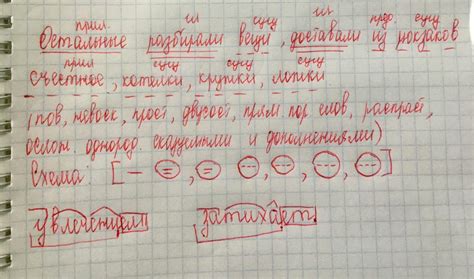 прил. гл сущ гл предл. сущ
Остальные разбирали вещи, доставали из рюкзаков
прил сущ сущ сущ
съестное, котелки, кружки, ложки
(пов, невоск, прост, двусост, прям пор слов, распрост,
ослож. однород. сказуемыми и дополнениями)
Схема: [— =, = — —, —, —, —]
увлечениям затихает